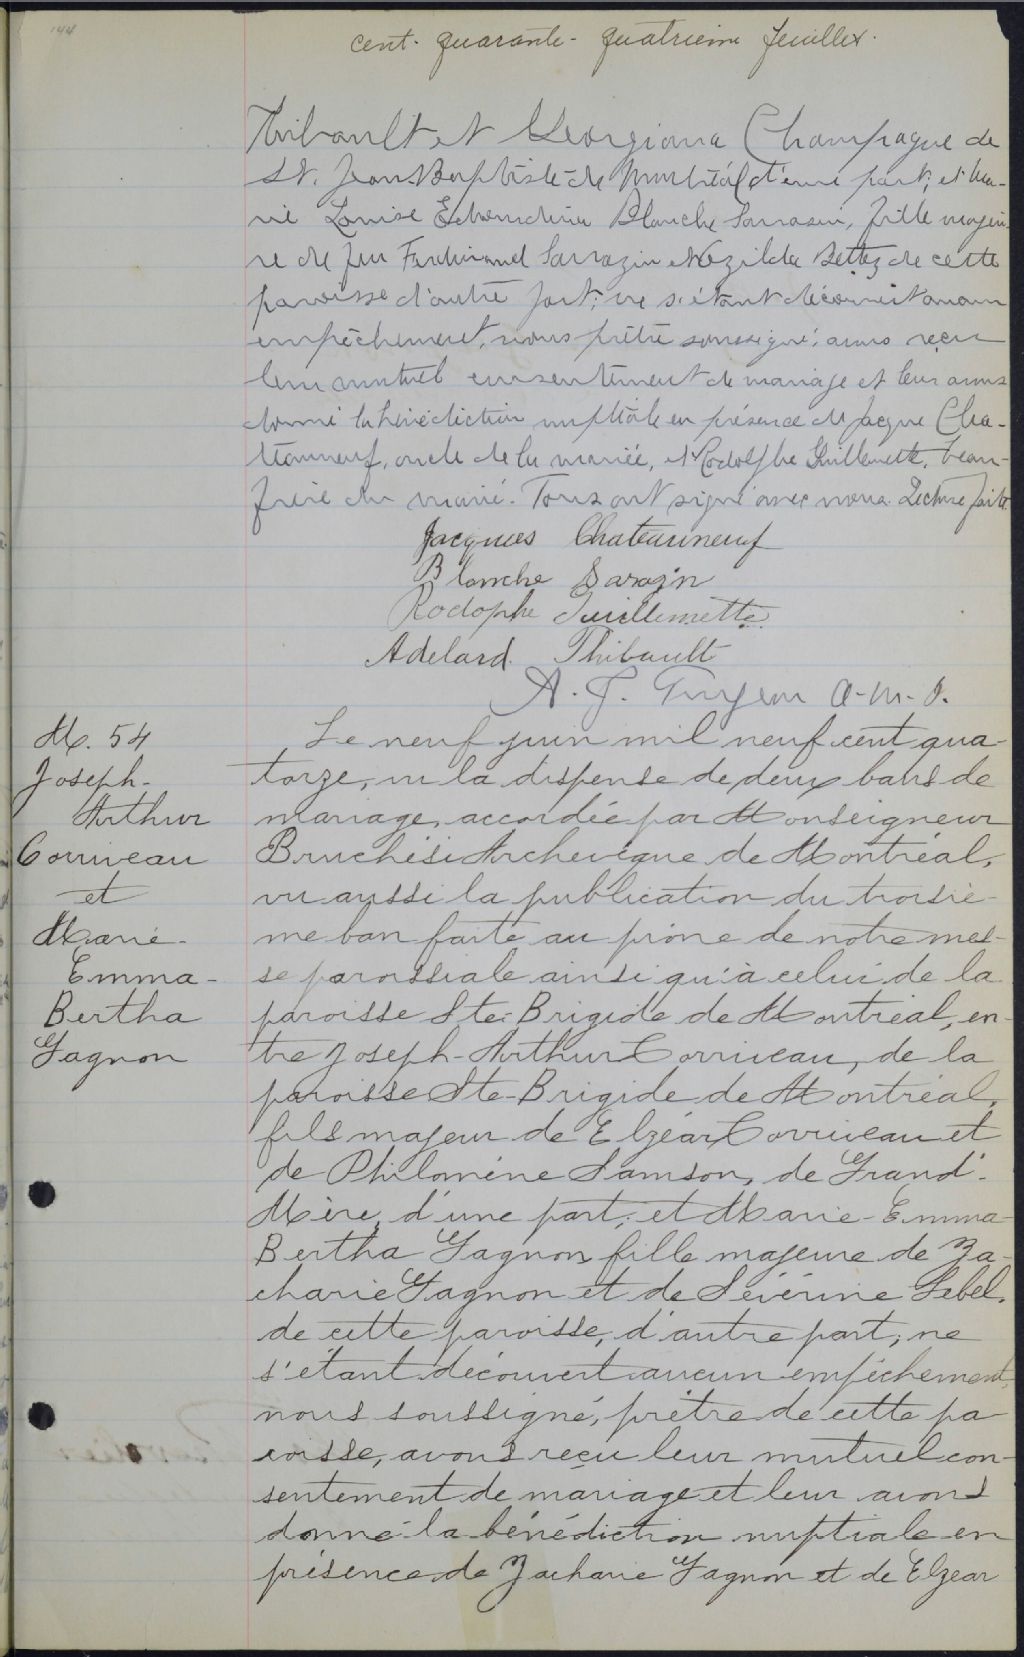 144
cent-quarante-quatrième feuillet.
Thibault et Georgiana Champagne de
St. Jean Baptiste de Montréal d'une part; et Ma-
rie Louise Blanche Sarrasin, fille majeu-
re de feu Ferdinand Sarrazin et Bettez de cette
paroisse d'autre part; ne s'étant découvert aucun
empêchement, nous prêtre soussigné, avons reçu
leur mutuel consentement de mariage et leur avons
donné la bénédiction nuptiale en présence de Jacque Cha-
teauneuf, oncle de la mariée, et Rodolphe Guillemette, beau-
frère du marié. Tous ont signé avec nous. Lecture faite.
Jacques Chateauneuf
Blanche Sarazin
Rodophe Guillemette
Adelard Thibault
A. J. o.m.i.
M. 54
Joseph-
Arthur
Corriveau
et
Marie-
Emma-
Bertha
Gagnon
Le neuf juin mil neuf cent qua-
torze, vu la dispense de deux bans de
mariage, accordée par Monseigneur
Bruchési Archevêque de Montréal,
vu aussi la publication du troisiè-
me ban faite au prône de notre mes-
se paroissiale ainsi qu'à celui de la
paroisse Ste-Brigide de Montréal, en-
tre Joseph-Arthur Corriveau, de la
paroisse Ste-Brigide de Montréal,
fils majeur de Elzéar Corriveau et
de Philomène Samson, de Grand'-
Mère, d'une part; et Marie-Emma-
Bertha Gagnon fille majeure de Za-
charie Gagnon et de Sévérine Lebel,
de cette paroisse, d'autre part; ne
s'étant découvert aucun empêchement,
nous soussigné, prêtre de cette pa-
roisse, avons reçu leur mutuel con-
sentement de mariage et leur avons
donné la bénédiction nuptiale en
présence de Zacharie Gagnon et de Elzéar